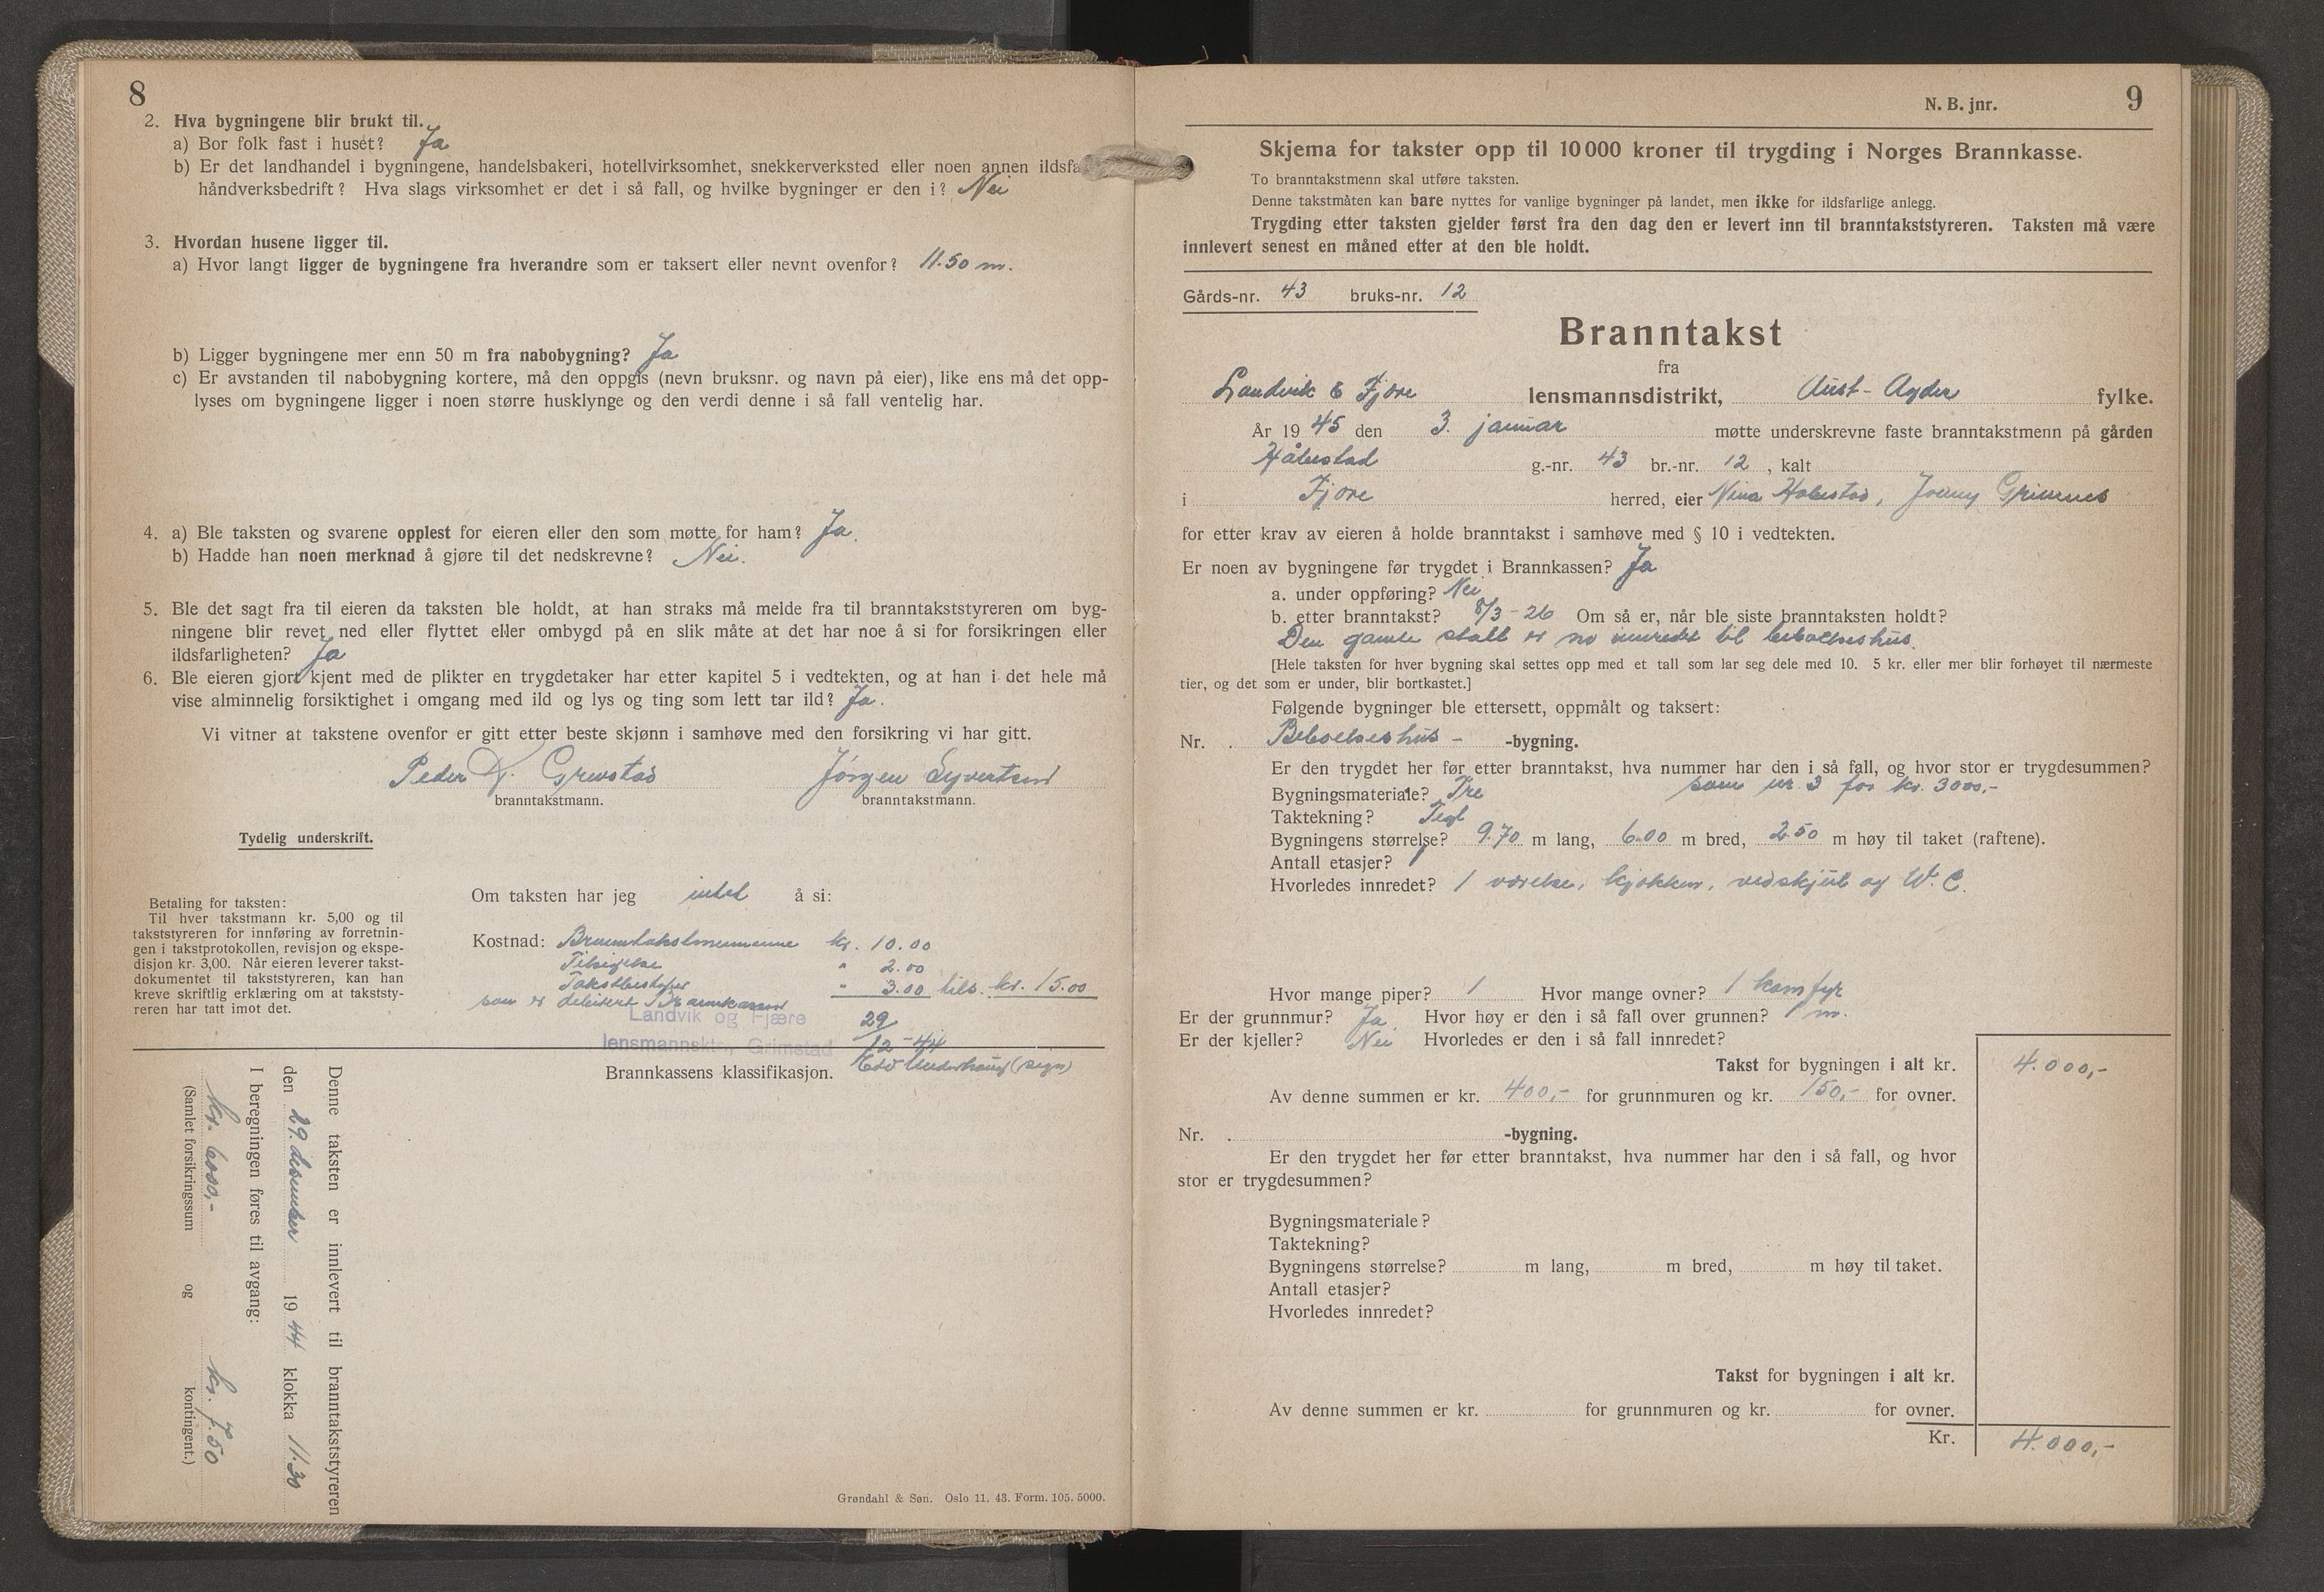 8
2. Hva bygningene blir brukt til.
a) Bor folk fast i huset? Ja
b) Er det landhandel i bygningene, handelsbakeri, hotellvirksomhet, snekkerverksted eller noen annen ildsfa
håndverksbedrift? Hva slags virksomhet er det i så fall, og hvilke bygninger er den i? Nei
3. Hvordan husene ligger til.
a) Hvor langt ligger de bygningene fra hverandre som er taksert eller nevnt ovenfor? 11.50 m.
b) Ligger bygningene mer enn 50 m fra nabobygning? Ja
c) Er avstanden til nabobygning kortere, må den oppgis (nevn bruksnr. og navn på eier), like ens må det opp-
lyses om bygningene ligger i noen større husklynge og den verdi denne i så fall ventelig har.
4. a) Ble taksten og svarene opplest for eieren eller den som møtte for ham? Ja.
b) Hadde han noen merknad å gjøre til det nedskrevne? Nei.
5. Ble det sagt fra til eieren da taksten ble holdt, at han straks må melde fra til branntakststyreren om byg-
ningene blir revet ned eller flyttet eller ombygd på en slik måte at det har noe å si for forsikringen eller
ildsfarligheten? Ja
6. Ble eieren gjort kjent med de plikter en trygdetaker har etter kapitel 5 i vedtekten, og at han i det hele må
vise alminnelig forsiktighet i omgang med ild og lys og ting som lett tar ild? Ja.
Vi vitner at takstene ovenfor er gitt etter beste skjønn i samhøve med den forsikring vi har gitt.
Peder Grevstad Jørgen Syvertsen
branntakstmann. branntakstmann.
Tydelig underskrift.
Betaling for taksten:
Til hver takstmann kr. 5,00 og til
takststyreren for innføring av forretnin-
gen i takstprotokollen, revisjon og ekspe-
disjon kr. 3,00. Når eieren leverer takst-
dokumentet til takststyreren, kan han
kreve skriftlig erklæring om at takststy-
reren har tatt imot det.
Om taksten har jeg intet å si:
Kostnad: Branntakstmennene kr. 10.00
Tilsigelse " 2.00
Takstbestyrer " 3.00 tils. kr. 15.00
som er debitert Brannkassen
Landvik og Fjære
lensmannsktr, Grimstad
29/12-44
(sign)
Brannkassens klassifikasjon.
Denne taksten er innlevert til branntakststyreren
den 29. desember 1944 klokka 11.30
I beregningen føres til avgang:
kr. 6000,- kr. 7.50
(Samlet forsikringssum og kontingent.)
Grøndahl & Søn. Oslo 11. 43. Form. 105. 5000.
N. B. jnr. 9
Skjema for takster opp til 10 000 kroner til trygding i Norges Brannkasse.
To branntakstmenn skal utføre taksten.
Denne takstmåten kan bare nyttes for vanlige bygninger på landet, men ikke for ildsfarlige anlegg.
Trygding etter taksten gjelder først fra den dag den er levert inn til branntakststyreren. Taksten må være
innlevert senest en måned etter at den ble holdt.
Gårds-nr. 43 bruks-nr. 12
Branntakst
fra
Landvik & Fjære lensmannsdistrikt, Aust-Agder fylke.
År 1945 den 3. januar møtte underskrevne faste branntakstmenn på gården
Håbestad g.-nr. 43 br.-nr. 12, kalt
i Fjære herred, eier Nina Håbestad, Grimnes
for etter krav av eieren å holde branntakst i samhøve med § 10 i vedtekten.
Er noen av bygningene før trygdet i Brannkassen? Ja
a. under oppføring? Nei
b. etter branntakst? 8/3-26 Om så er, når ble siste branntaksten holdt?
Den gamle stall er no innredet til beboelseshus.
[Hele taksten for hver bygning skal settes opp med et tall som lar seg dele med 10. 5 kr. eller mer blir forhøyet til nærmeste
tier, og det som er under, blir bortkastet.]
Følgende bygninger ble ettersett, oppmålt og taksert:
Nr. . Beboelseshus - -bygning.
Er den trygdet her før etter branntakst, hva nummer har den i så fall, og hvor stor er trygdesummen?
Bygningsmateriale? Tre som nr. 3 for kr. 3000,-
Taktekning? Tegl
Bygningens størrelse? 9.70 m lang, 6.00 m bred, 2.50 m høy til taket (raftene).
Antall etasjer? 1
Hvorledes innredet? 1 værelse, kjøkken, vedskjul og W. C.
Hvor mange piper? 1 Hvor mange ovner? 1 komfyr
Er der grunnmur? Ja. Hvor høy er den i så fall over grunnen? 1 m.
Er der kjeller? Nei Hvorledes er den i så fall innredet?
Takst for bygningen i alt kr. 4.000,-
Av denne summen er kr. 400,- for grunnmuren og kr. 150,- for ovner.
Nr. . -bygning.
Er den trygdet her før etter branntakst, hva nummer har den i så fall, og hvor
stor er trygdesummen?
Bygningsmateriale?
Taktekning?
Bygningens størrelse? m lang, m bred, m høy til taket.
Antall etasjer?
Hvorledes innredet?
Takst for bygningen i alt kr.
Av denne summen er kr. for grunnmuren og kr. for ovner.
Kr. 4.000,-